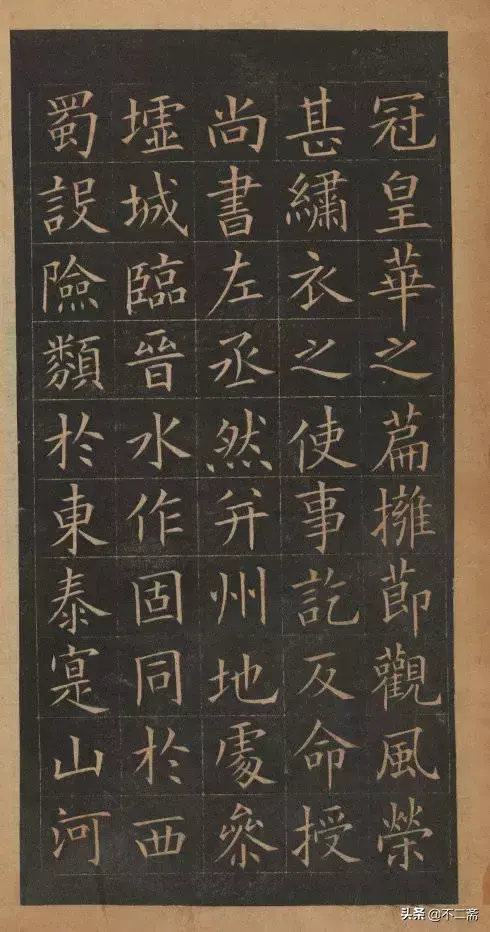 冠皇華之篇擁節觀風榮
甚繡衣之使事訖反命授
尚書左丞然并州地處叅
墟城臨晉水作固同於西
蜀設險類於東泰寔山河
头条 @不二斋